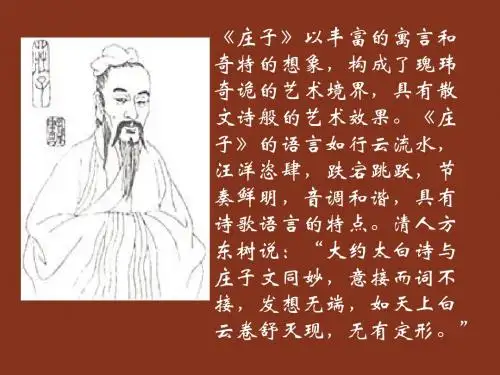 莊子
《庄子》以丰富的寓言和
奇特的想象，构成了瑰玮
奇诡的艺术境界，具有散
文诗般的艺术效果。《庄
子》的语言如行云流水，
汪洋恣肆，跌宕跳跃，节
奏鲜明，音调和谐，具有
诗歌语言的特点。清人方
东树说：“大约太白诗与
庄子文同妙，意接而词不
接，发想无端，如天上白
云卷舒灭现，无有定形。”